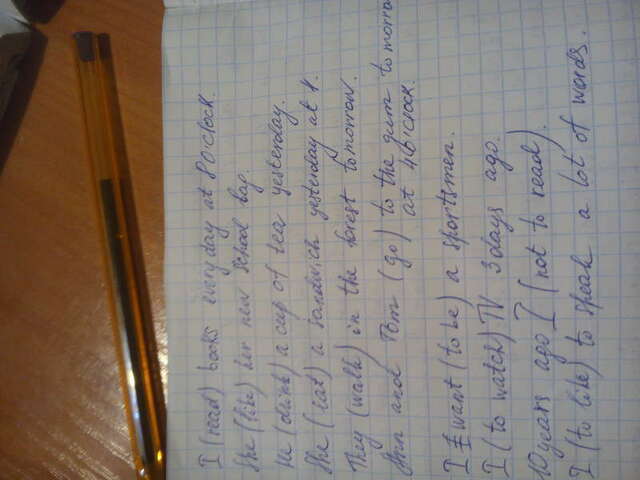 I (read) books every day at 8 o'clock.
She (like) her new school bag.
He (drink) a cup of tea yesterday.
She (eat) a sandwich yesterday at 4.
They (walk) in the forest tomorrow.
Ann and Tom (go) to the gum tomorrow
at 46 o'clock.
I want (to be) a sportsmen.
I (to watch) TV 3 days ago.
10 years ago I (not to read).
I (to like) to speak a lot of words.